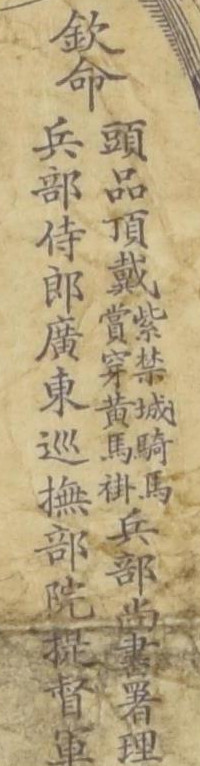 欽命
頭品頂戴紫禁城騎馬賞穿黃馬褂兵部尚書署理
兵部侍郎廣東巡撫部院提督軍